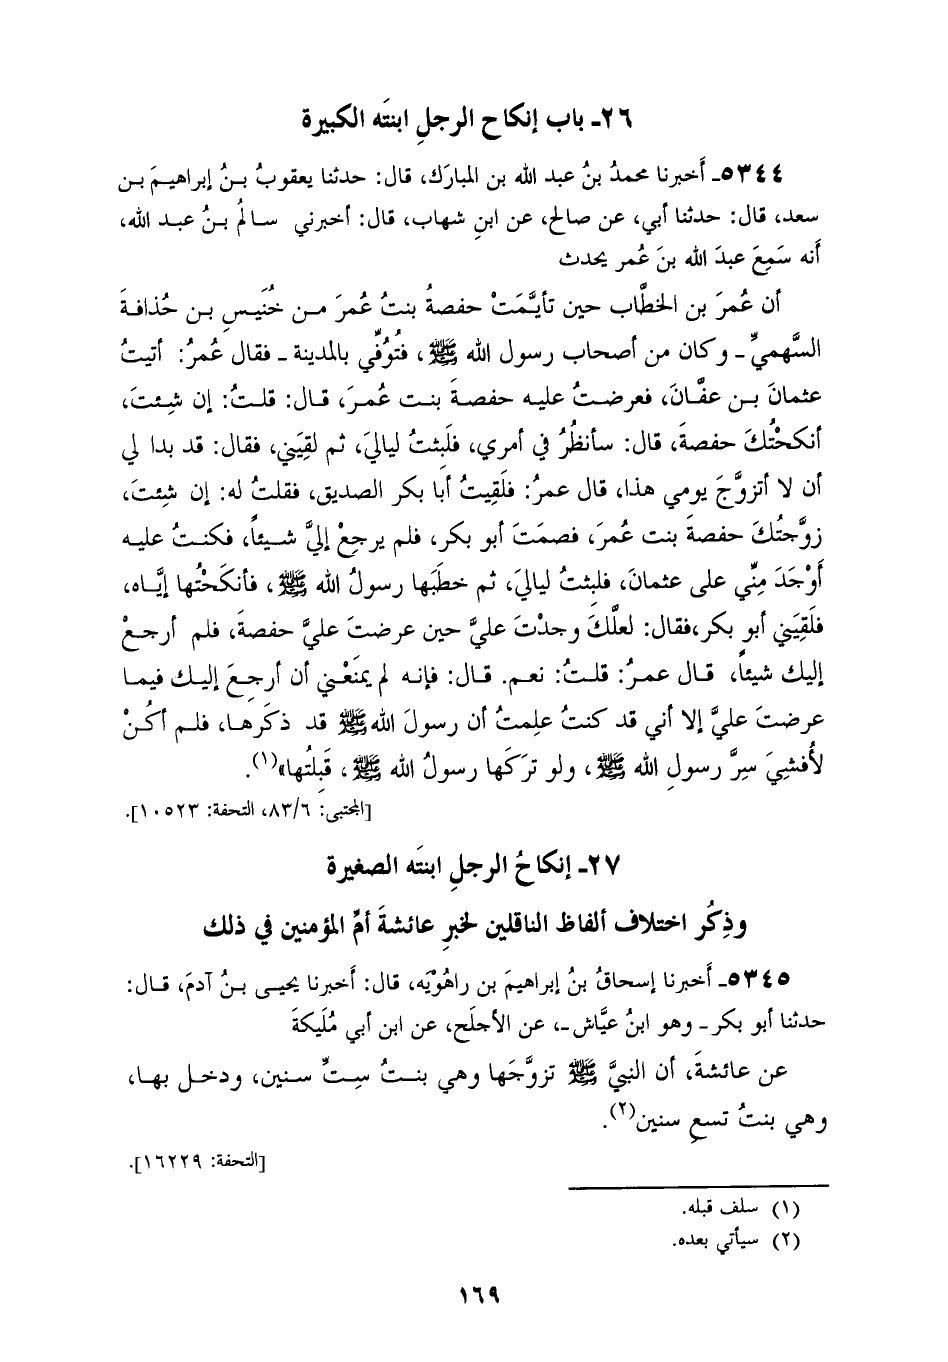 ٢٦ـ باب إنكاح الرجلِ ابنتَه الكبيرة
٥٣٤٤ـ أَخبرنا محمدُ بنُ عبد الله بن المبارَك، قال: حدثنا يعقوبُ بنُ إبراهيمَ بن
سعد، قال: حدثنا أبي، عن صالح، عن ابنِ شهاب، قال: أخبرني سالمُ بنُ عبد الله،
أَنه سَمِعَ عبدَ الله بنَ عُمر يحدث
أن عُمرَ بن الخطَّاب حين تأيَّمَتْ حفصةُ بنتُ عُمرَ من خُنَيسِ بن حُذافةَ
السَّهميِّ ـ وكان من أصحاب رسول الله ﷺ، فتُوُفِّي بالمدينة ـ فقال عُمرُ: أتيتُ
عثمانَ بن عفَّانَ، فعرضتُ عليه حفصةَ بنت عُمرَ، قال: قلتُ: إن شِئتَ،
أنكحْتُكَ حفصةَ، قال: سأنظُرُ في أمري، فلَبِثتُ لياليَ، ثم لقِيَني، فقال: قد بدا لي
أن لا أتزوَّجَ يومي هذا، قال عمرُ: فلَقِيتُ أبا بكر الصديق، فقلتُ له: إن شِئتَ،
زوَّجتُكَ حفصةَ بنت عُمرَ، فصمَتَ أبو بكر، فلم يرجعِ إليَّ شيئاً، فكنتُ عليه
أَوْجَدَ مِنِّي على عثمانَ، فلبِثتُ لياليَ، ثم خطَبَها رسولُ الله ﷺ، فأنكَحْتُها إيَّاه،
فلَقِيَني أبو بكر،فقال: لعلَّكَ وجدْتَ عليَّ حين عرضتَ عليَّ حفصةَ، فلم أرجعْ
إليك شيئاً، قال عمرُ: قلتُ: نعم. قال: فإنه لم يمنَعْني أن أرجِعَ إليك فيما
عرضتَ عليَّ إلا أني قد كنتُ علِمتُ أن رسولَ الله ﷺ قد ذكَرها، فلم أكُنْ
لأُفشِيَ سِرَّ رسولِ الله ﷺ، ولو ترَكَها رسولُ الله ﷺ، قَبِلتُها»(١).
[المجتبى: ٨٣/٦، التحفة: ١٠٥٢٣].
٢٧ـ إنكاحُ الرجلِ ابنتَه الصغيرة
وذِكُر اختلاف ألفاظ الناقلين لخبرِ عائشةَ أمِّ المؤمنين في ذلك
٥٣٤٥ـ أَخبرنا إسحاقُ بنُ إبراهيمَ بن راهُوْيَه، قال: أَخبرنا يحيى بنُ آدمَ، قال:
حدثنا أبو بكر ـ وهو ابنُ عيَّاش ـ، عن الأجلَح، عن ابن أبي مُلَيكةَ
عن عائشةَ، أن النبيَّ ﷺ تزوَّجَها وهي بنتُ سِتِّ سنين، ودخل بها،
وهي بنتُ تسعِ سنين(٢).
[التحفة: ١٦٢٢٩].
(١) سلف قبله.
(٢) سيأتي بعده.
١٦٩